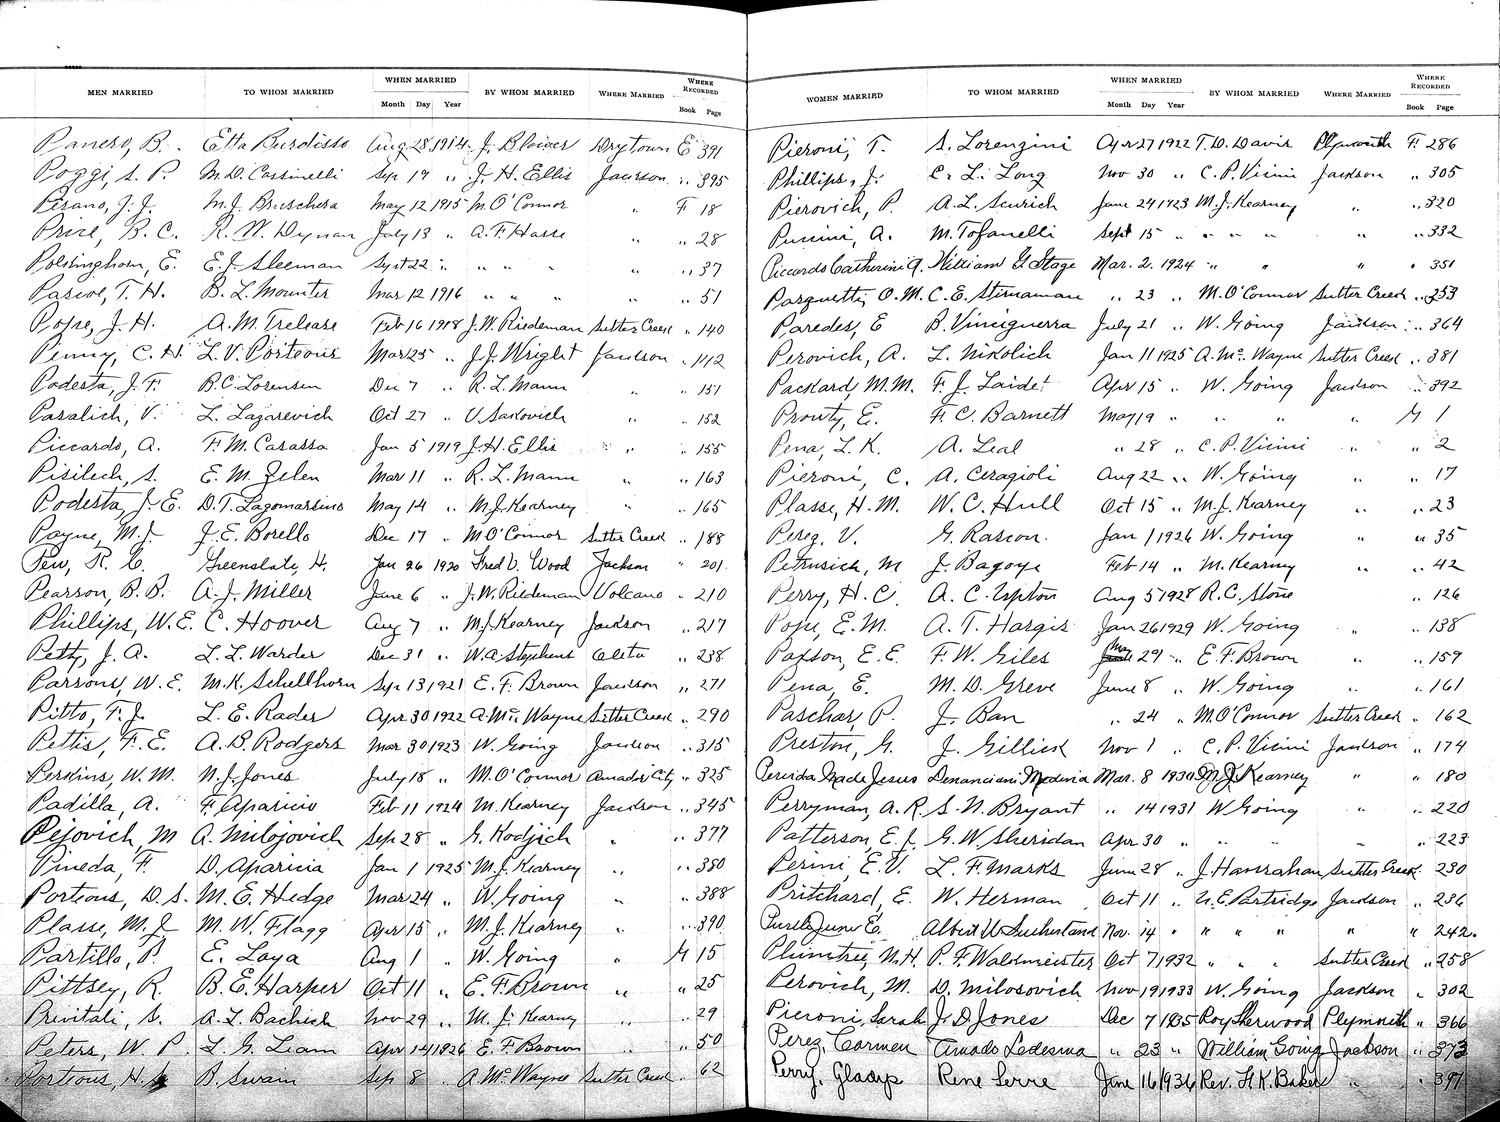 MEN MARRIED TO WHOM MARRIED WHEN MARRIED Month Day Year BY WHOM MARRIED WHERE MARRIED WHERE RECORDED Book Page
Panero, B. Etta Burdisso Aug 28 1914 J. Blower Drytown E 391
Poggi, S. P. M. D. Cassinelli Sep 19 " J. H. Ellis Jackson " 395
Pisano, J. J. M. J. Bruschera May 12 1915 M. O'Connor " F 18
Price, B. C. R. W. Dynan July 13 " A. F. Hasse " " 28
Polkinghorn, E. E. J. Sleeman Sept 22 " " " " " " 37
Pascoe, T. H. B. L. Mounter Mar 12 1916 " " " " " 51
Pope, J. H. A. M. Trelease Feb 16 1918 J. W. Riedeman Sutter Creek " 140
Penny, C. H. L. V. Porteous Mar 25 " J. J. Wright Jackson " 142
Podesta, J. F. B. C. Lorensen Dec 7 " R. L. Mann " " 151
Paralich, V. L. Lazarevich Oct 27 " V Sakovich " " 152
Piccardo, A. F. M. Casassa Jan 5 1919 J. H. Ellis " " 155
Pisilech, S. E. M. Zelen Mar 11 " R. L. Mann " " 163
Podesta, J. E. D. T. Lagomarsino May 14 " M. J. Kearney " " 165
Payne, M. J. J. E. Borello Dec 17 " M O'Connor Sutter Creek " 188
Pew, R. C. Greenslate, H. Jan 26 1920 Fred V. Wood Jackson " 201
Pearson, B. B. A. J. Miller June 6 " J. W. Riedeman Volcano " 210
Phillips, W. E. C. Hoover Aug 7 " M. J. Kearney Jackson " 217
Petty, J. A. L. L. Warder Dec 31 " W. A Stephens Oleta " 238
Parsons, W. E. M. K. Schellhorn Sep 13 1921 E. F. Brown Jackson " 271
Pitto, F. J. L. E. Rader Apr 30 1922 A. Mc Wayne Sutter Creek " 290
Pettis, F. E. A. B. Rodgers Mar 30 1923 W. Going Jackson " 315
Perkins, W. M. N. J. Jones July 18 " M. O'Connor Amador City " 325
Padilla, A. F. Aparicio Feb 11 1924 M. Kearney Jackson " 345
Pejovich, M A. Milojovich Sep 28 " G. Kodjich " " 377
Pineda, F. D. Aparicia Jan 1 1925 M. J. Kearney " " 380
Porteous, D. S. M. E. Hedge Mar 24 " W. Going " " 388
Plasse, M. J. M. W. Flagg Apr 15 " M. J. Kearney " " 390
Partillo, P. E. Loya Aug 1 " W. Going " G 15
Pittsey, R. B. E. Harper Oct 11 " E. F. Brown " " 25
Previtali, S. A. L. Bachich Nov 29 " M. J. Kearney " " 29
Peters, W P. L. G. Liam Apr 14 1926 E. F Brown " " 50
Porteous, H. B. Swain Sep 8 " A Mc Wayne Sutter Creek " 62
WOMEN MARRIED TO WHOM MARRIED WHEN MARRIED Month Day Year BY WHOM MARRIED WHERE MARRIED WHERE RECORDED Book Page
Pieroni, T. S. Lorenzini Apr 27 1922 T. D. Davis Plymouth F. 286
Phillips, J. C. L. Long Nov 30 " C. P. Vicini Jackson " 305
Pierovich, P. A. L. Scurich June 24 1923 M. J. Kearney " " 320
Puccini, A. M. Tofanelli Sept 15 " " " " " " 332
Piccardo Catherine A. William G Stage Mar. 2. 1924 " " " " 351
Parquetti, O. M. C. E. Stirnaman " 23 " M. O'Connor Sutter Creek " 353
Paredes, E B. Vinciguerra July 21 " W. Going Jackson " 364
Perovich, A. L. Nikolich Jan 11 1925 A. Mc Wayne Sutter Creek " 381
Packard, M. M. F. J. Laidet Apr 15 " W. Going Jackson " 392
Prouty, E. F. C. Barnett May 19 " " " " G 1
Pena, L. K. A. Leal " 28 " C. P. Vicini " " 2
Pieroni, C. A. Ceragioli Aug 22 " W. Going " " 17
Plasse, H. M. W. C. Hull Oct 15 " M. J. Kearney " " 23
Perez, V. G. Rascon. Jan 1 1926 W. Going " " 35
Petrusich, M J. Bagoye Feb 14 " M. Kearney " " 42
Perry, H. C. A. C. Upton Aug 5 1928 R. C. Stone " 126
Pope, E. M. A. T. Hargis Jan 26 1929 W. Going " " 138
Paxson, E. E. F. W. Giles May 29 " E. F. Brown " 159
Pena, E. M. D. Greve June 8 " W. Going " " 161
Paschar, P. J. Ban " 24 " M. O'Connor Sutter Creek " 162
Preston, G. J. Gillick Nov 1 " C. P. Vicini Jackson " 174
Jesus Mar. 8 1930 M. J. Kearney " " 180
Perryman, A. R. S. N. Bryant " 14 1931 W Going " " 220
Patterson, E. J. G. W Sheridan Apr 30 " " " " " 223
Perini, E. V. L. F. Marks June 28 " J. Hanrahan Sutter Creek " 230
Pritchard, E. W. Herman Oct 11 " E. Partridge Jackson " 236
June E. Albert W Sutherland Nov. 14 " " " " " " 242.
Plumtree, N. H. P. F. Waldmeister Oct 7 1932 " " " Sutter Creek " 258
Perovich, M. D. Milosovich Nov 19 1933 W. Going Jackson " 302
Pieroni, Sarah J. D. Jones Dec 7 1935 Roy Sherwood Plymouth " 366
Perez, Carmen Amado Ledesma " 23 " William Going Jackson " 373
Perry, Gladys Rene Serre June 16 1936 Rev. H. K. Baker " " 397